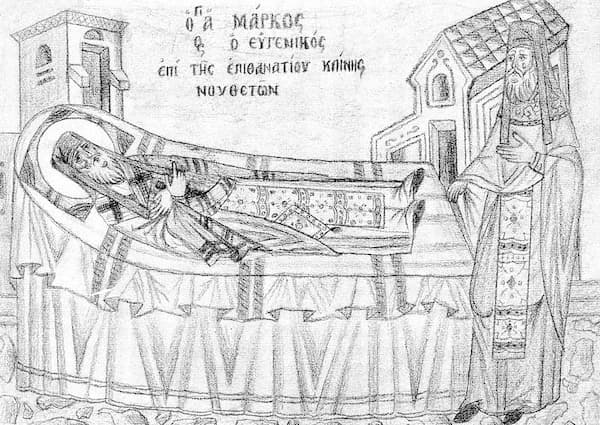 ὁ ἍΓΙΟΣ ΜΆΡΚΟΣ
ὁ ΕΥΓΕΝΙΚΌΣ
ἐπί τῆς ἐπιθανατίου κλίνης
ΝΟΥΘΕΤῶΝ